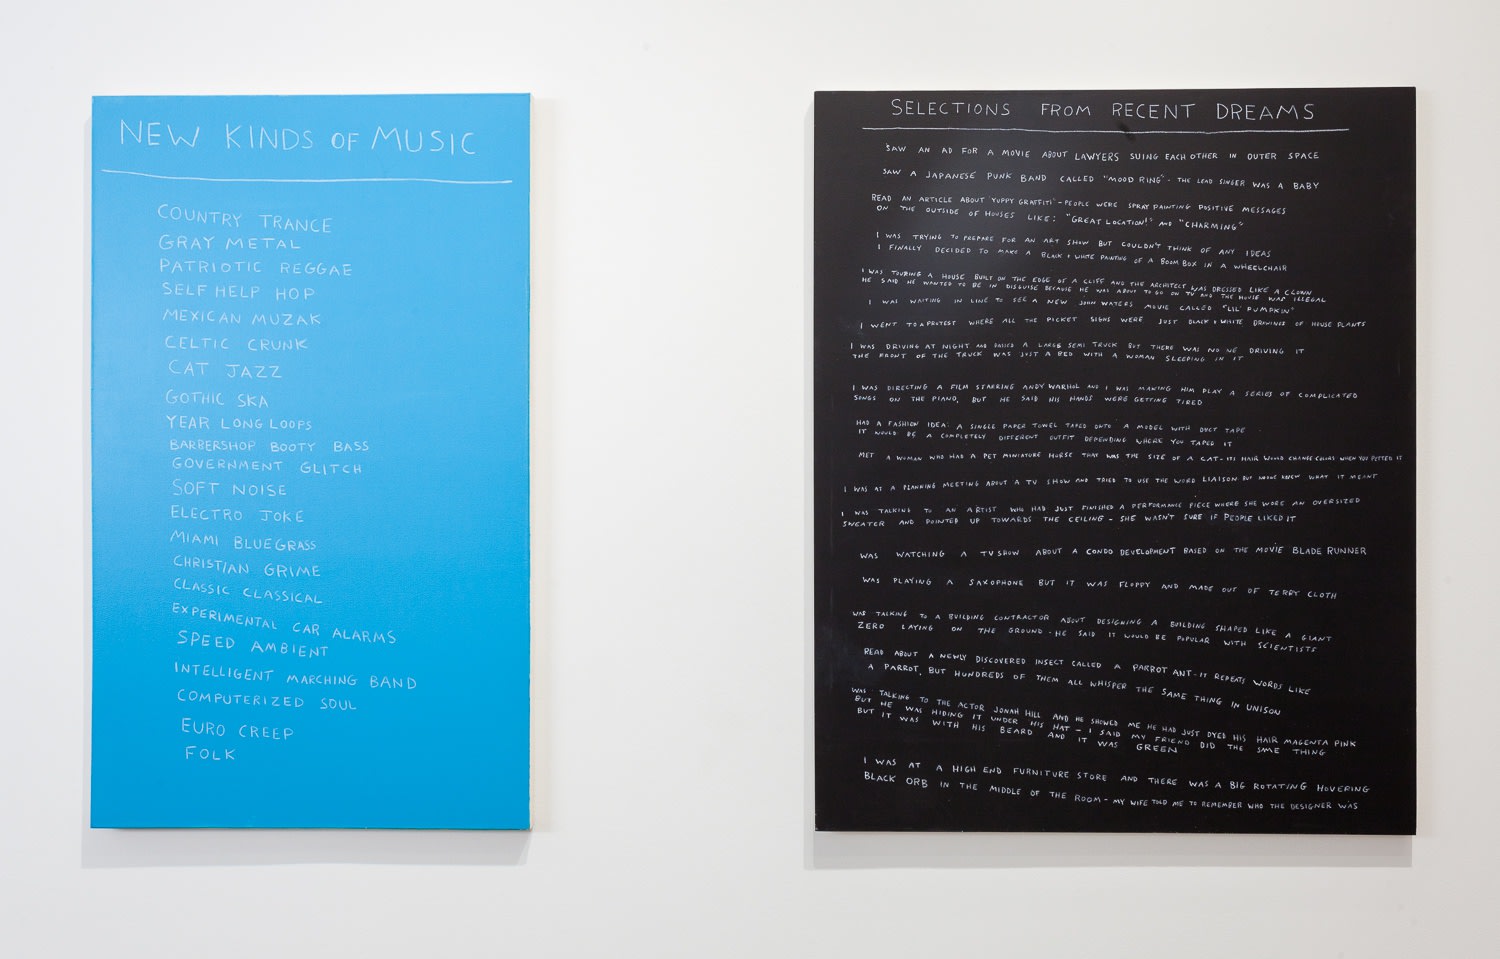 NEW KINDS OF MUSIC
COUNTRY TRANCE
GRAY METAL
PATRIOTIC REGGAE
SELF HELP HOP
MEXICAN MUZAK
CELTIC CRUNK
CAT JAZZ
GOTHIC SKA
YEAR LONG LOOPS
BARBERSHOP BOOTY BASS
GOVERNMENT GLITCH
SOFT NOISE
ELECTRO JOKE
MIAMI BLUEGRASS
CHRISTIAN GRIME
CLASSIC CLASSICAL
EXPERIMENTAL CAR ALARMS
SPEED AMBIENT
INTELLIGENT MARCHING BAND
COMPUTERIZED SOUL
EURO CREEP
FOLK
SELECTIONS FROM RECENT DREAMS
SAW AN AD FOR A MOVIE ABOUT LAWYERS SUING EACH OTHER IN OUTER SPACE
SAW A JAPANESE PUNK BAND CALLED "MOOD RING" - THE LEAD SINGER WAS A BABY
READ AN ARTICLE ABOUT 'YUPPY GRAFFITI' - PEOPLE WERE SPRAY PAINTING POSITIVE MESSAGES
ON THE OUTSIDE OF HOUSES LIKE: "GREAT LOCATION!" AND "CHARMING"
I WAS TRYING TO PREPARE FOR AN ART SHOW BUT COULDN'T THINK OF ANY IDEAS
I FINALLY DECIDED TO MAKE A BLACK & WHITE PAINTING OF A BOOM BOX IN A WHEELCHAIR
I WAS TOURING A HOUSE BUILT ON THE EDGE OF A CLIFF AND THE ARCHITECT WAS DRESSED LIKE A CLOWN
HE SAID HE WANTED TO BE IN DISGUISE BECAUSE HE WAS ABOUT TO GO ON TV AND THE HOUSE WAS ILLEGAL
I WAS WAITING IN LINE TO SEE A NEW JOHN WATERS MOVIE CALLED "LIL' PUMPKIN"
I WENT TO A PROTEST WHERE ALL THE PICKET SIGNS WERE JUST BLACK & WHITE DRAWINGS OF HOUSE PLANTS
I WAS DRIVING AT NIGHT AND PASSED A LARGE SEMI TRUCK BUT THERE WAS NO ONE DRIVING IT
THE FRONT OF THE TRUCK WAS JUST A BED WITH A WOMAN SLEEPING IN IT
I WAS DIRECTING A FILM STARRING ANDY WARHOL AND I WAS MAKING HIM PLAY A SERIES OF COMPLICATED
SONGS ON THE PIANO, BUT HE SAID HIS HANDS WERE GETTING TIRED
HAD A FASHION IDEA: A SINGLE PAPER TOWEL TAPED ONTO A MODEL WITH DUCT TAPE
IT WOULD BE A COMPLETELY DIFFERENT OUTFIT DEPENDING WHERE YOU TAPED IT
MET A WOMAN WHO HAD A PET MINIATURE HORSE THAT WAS THE SIZE OF A CAT - ITS HAIR WOULD CHANGE COLORS WHEN YOU PETTED IT
I WAS AT A PLANNING MEETING ABOUT A TV SHOW AND TRIED TO USE THE WORD LIAISON BUT NO ONE KNEW WHAT IT MEANT
I WAS TALKING TO AN ARTIST WHO HAD JUST FINISHED A PERFORMANCE PIECE WHERE SHE WORE AN OVERSIZED
SWEATER AND POINTED UP TOWARDS THE CEILING - SHE WASN'T SURE IF PEOPLE LIKED IT
WAS WATCHING A TV SHOW ABOUT A CONDO DEVELOPMENT BASED ON THE MOVIE BLADE RUNNER
WAS PLAYING A SAXOPHONE BUT IT WAS FLOPPY AND MADE OUT OF TERRY CLOTH
WAS TALKING TO A BUILDING CONTRACTOR ABOUT DESIGNING A BUILDING SHAPED LIKE A GIANT
ZERO LAYING ON THE GROUND - HE SAID IT WOULD BE POPULAR WITH SCIENTISTS
READ ABOUT A NEWLY DISCOVERED INSECT CALLED A PARROT ANT - IT REPEATS WORDS LIKE
A PARROT, BUT HUNDREDS OF THEM ALL WHISPER THE SAME THING IN UNISON
WAS TALKING TO THE ACTOR JONAH HILL AND HE SHOWED ME HE HAD JUST DYED HIS HAIR MAGENTA PINK
BUT HE WAS HIDING IT UNDER HIS HAT - I SAID MY FRIEND DID THE SAME THING
BUT IT WAS WITH HIS BEARD AND IT WAS GREEN
I WAS AT A HIGH END FURNITURE STORE AND THERE WAS A BIG ROTATING HOVERING
BLACK ORB IN THE MIDDLE OF THE ROOM - MY WIFE TOLD ME TO REMEMBER WHO THE DESIGNER WAS